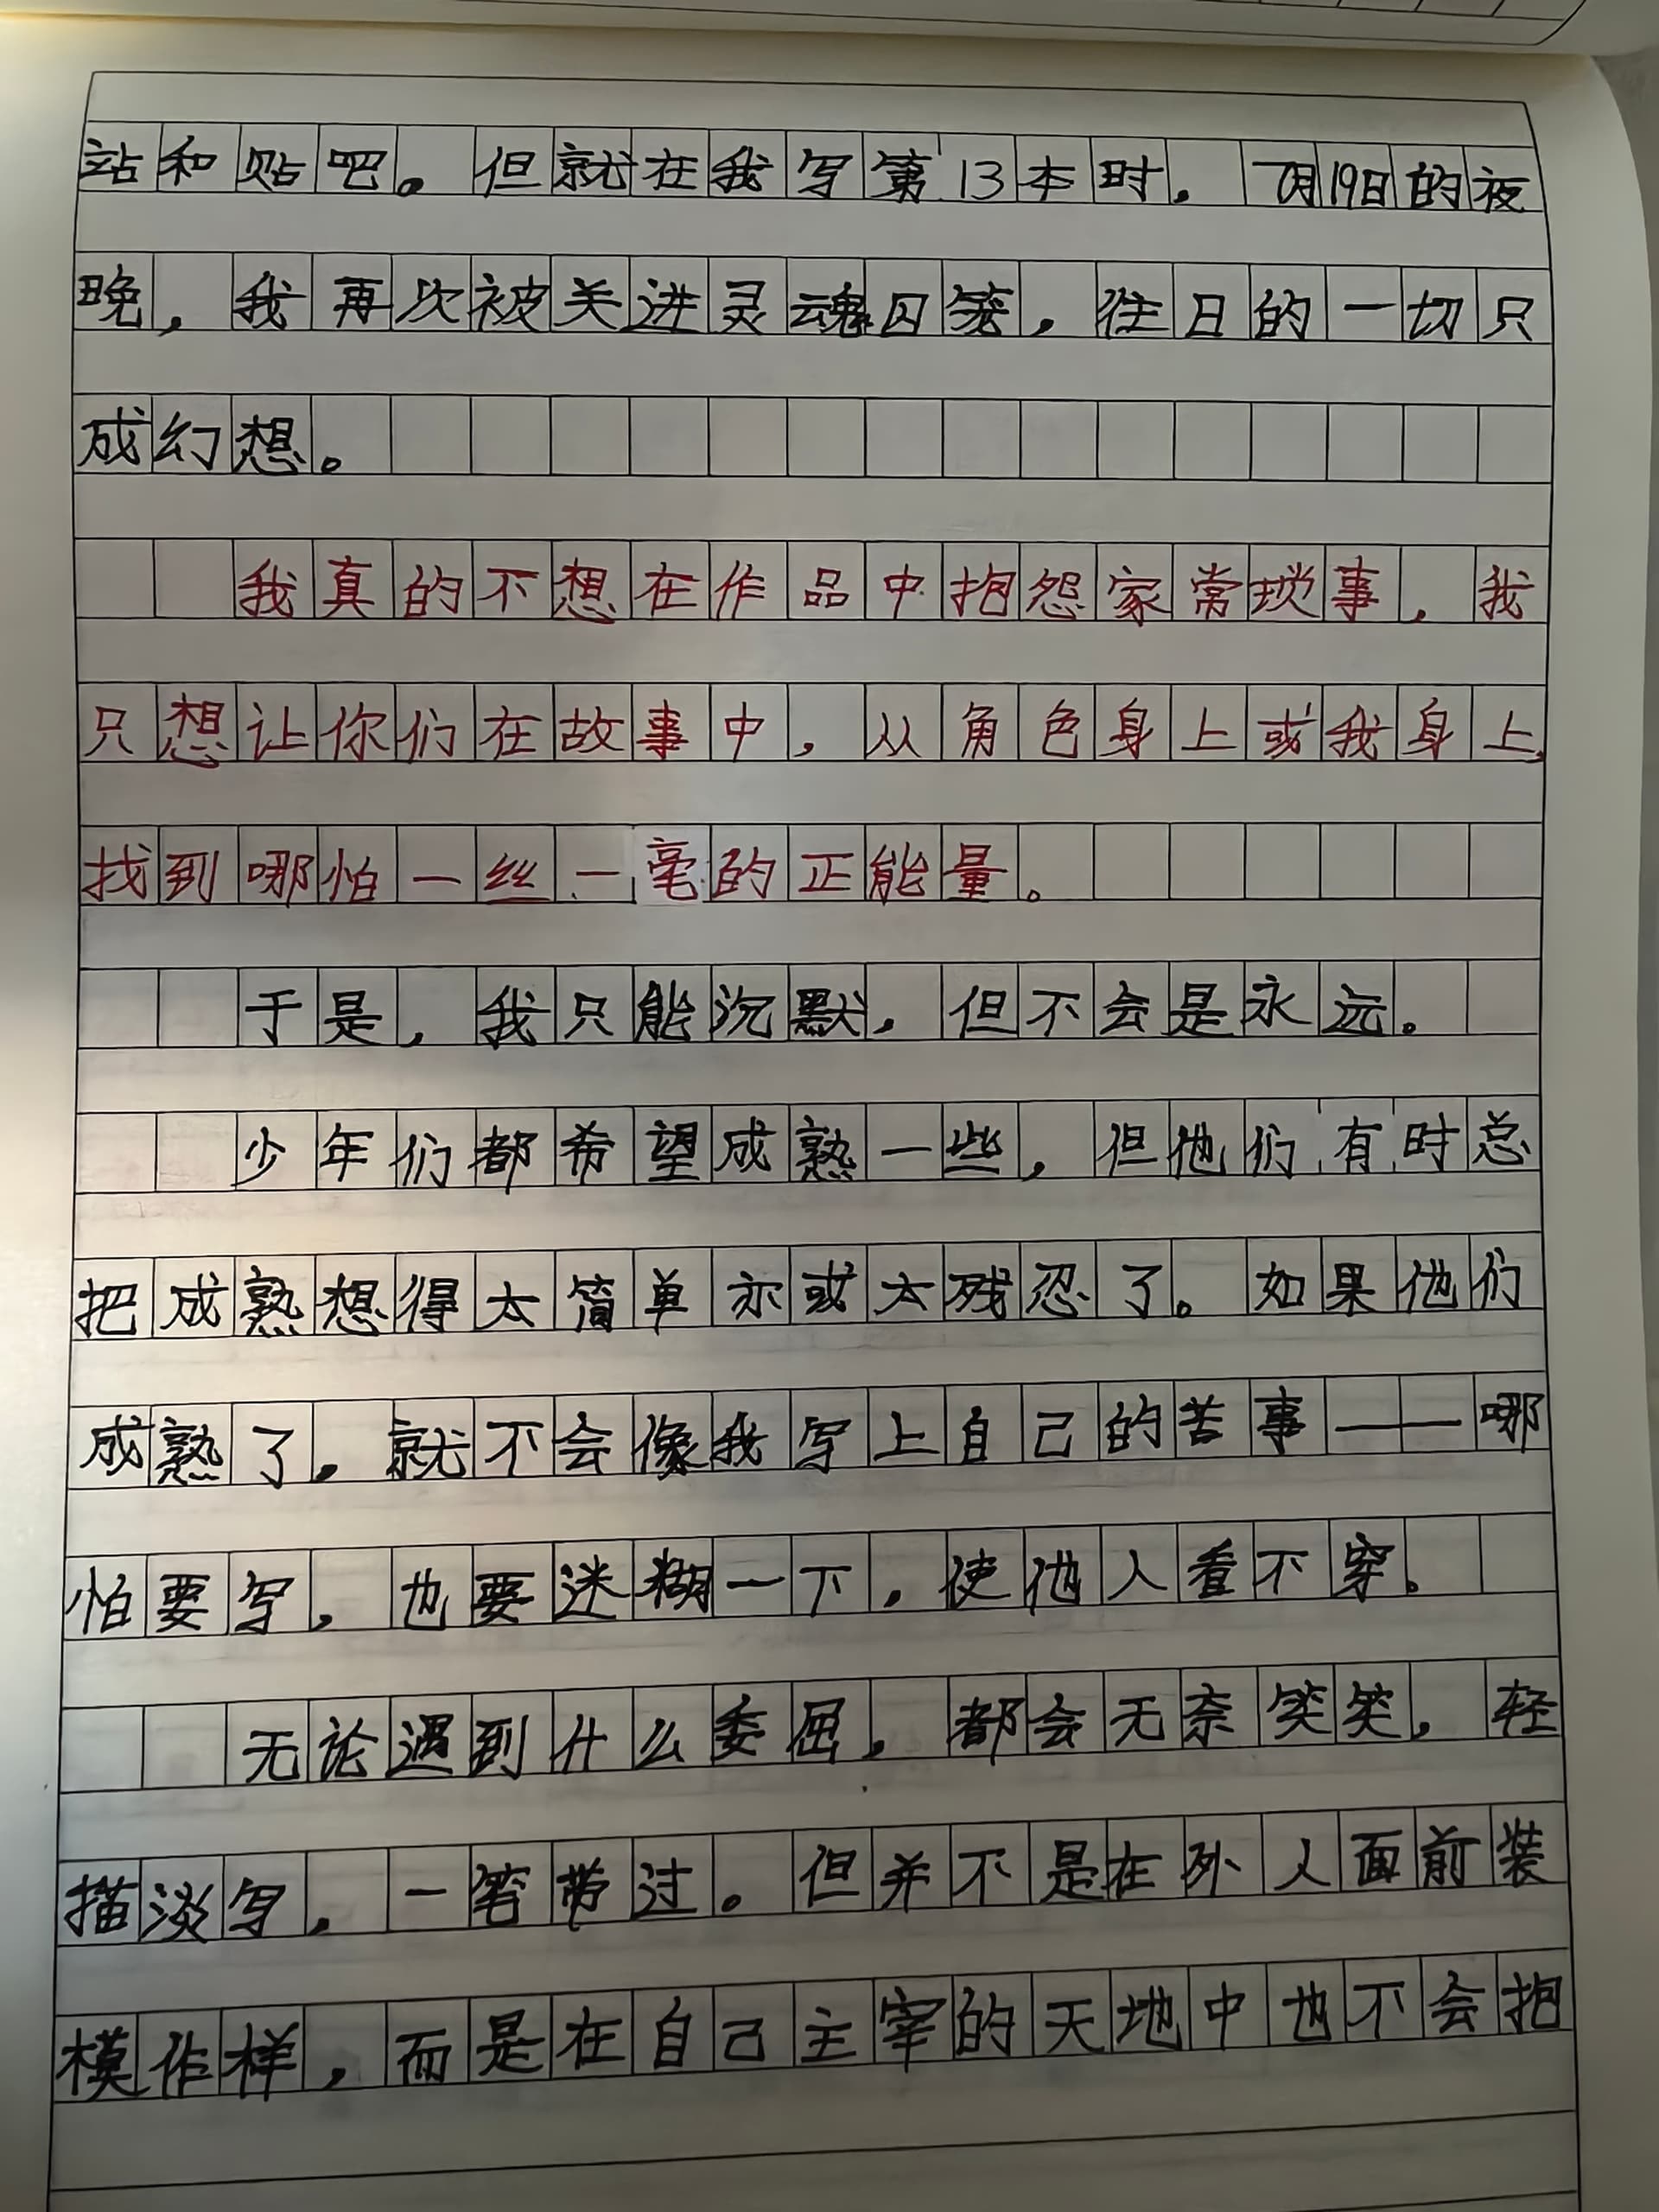 站和贴吧。但就在我写第13本时，7月19日的夜
晚，我再次被关进灵魂囚笼，往日的一切只
成幻想。
我真的不想在作品中抱怨家常琐事，我
只想让你们在故事中，从角色身上或我身上，
找到哪怕一丝一毫的正能量。
于是，我只能沉默，但不会是永远。
少年们都希望成熟一些，但他们有时总
把成熟想得太简单亦或太残忍了。如果他们
成熟了，就不会像我写上自己的苦事——哪
怕要写，也要迷糊一下，使他人看不穿。
无论遇到什么委屈，都会无奈笑笑，轻
描淡写，一笔带过。但并不是在外人面前装
模作样，而是在自己主宰的天地中也不会抱